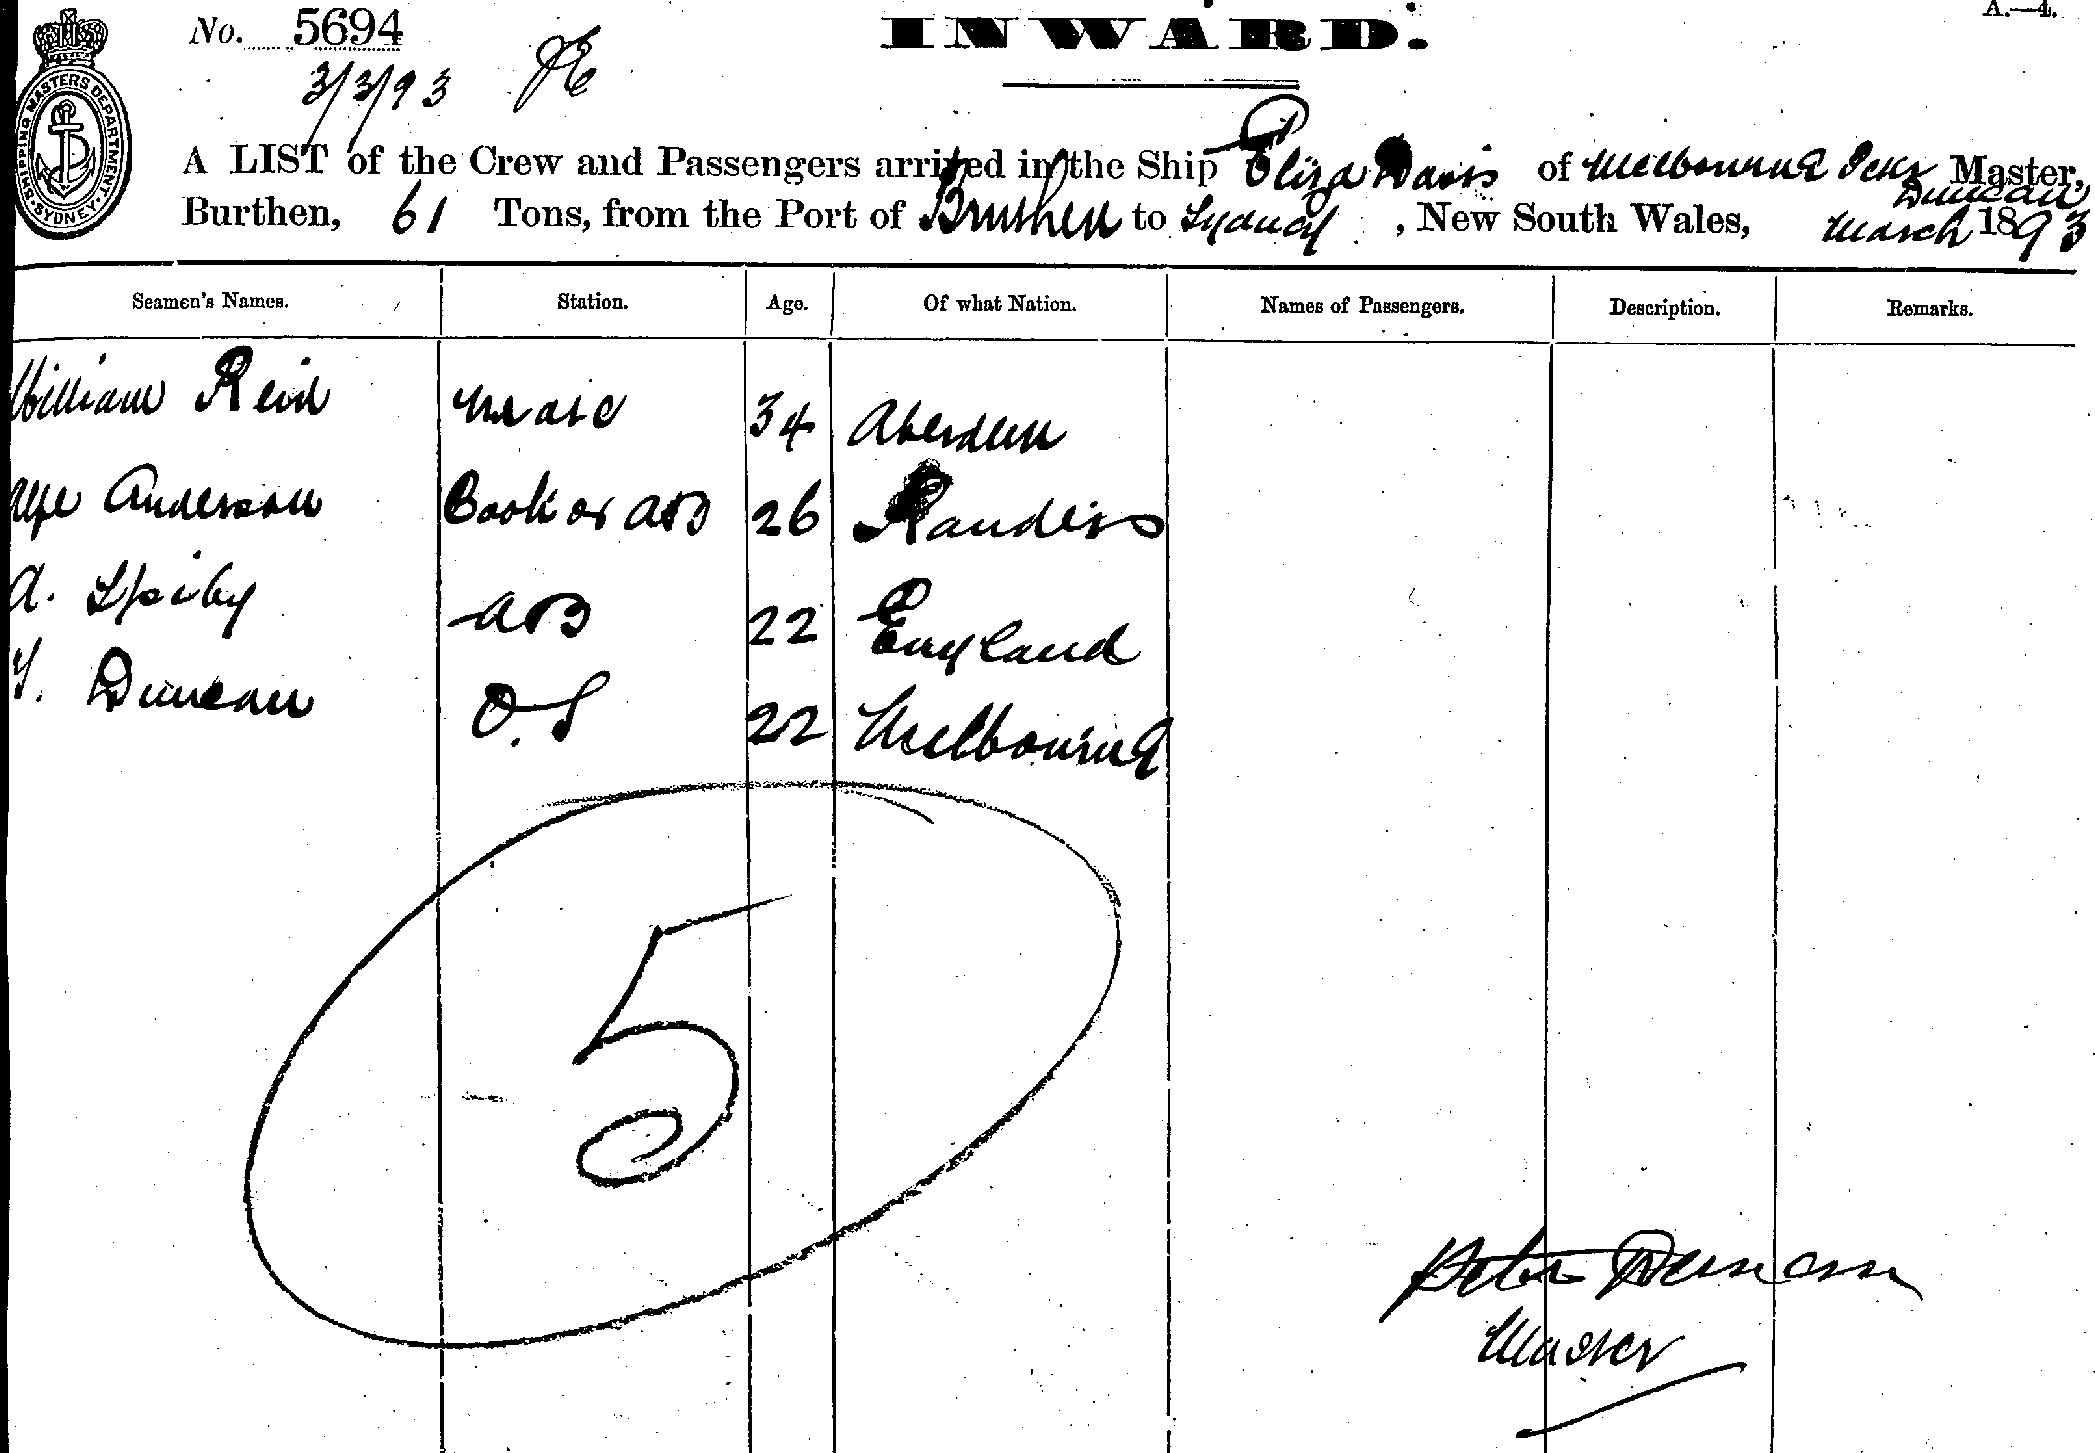 A.—4.
No. 5694
INWARD.
3/3/93
SHIPPING MASTERS DEPARTMENT
SYDNEY
A LIST of the Crew and Passengers arrived in the Ship Eliza Davis of Melbourne Peter Duncan Master,
Burthen, 61 Tons, from the Port of Bruthen to Sydney, New South Wales, March 1893
Seamen's Names. Station. Age. Of what Nation. Names of Passengers. Description. Remarks.
William Reid Mate 34 Aberdeen
Anderson Cook or AB 26 Randers
A. Spiby AB 22 England
Duncan O.S 22 Melbourne
5
Peter Duncan
Master